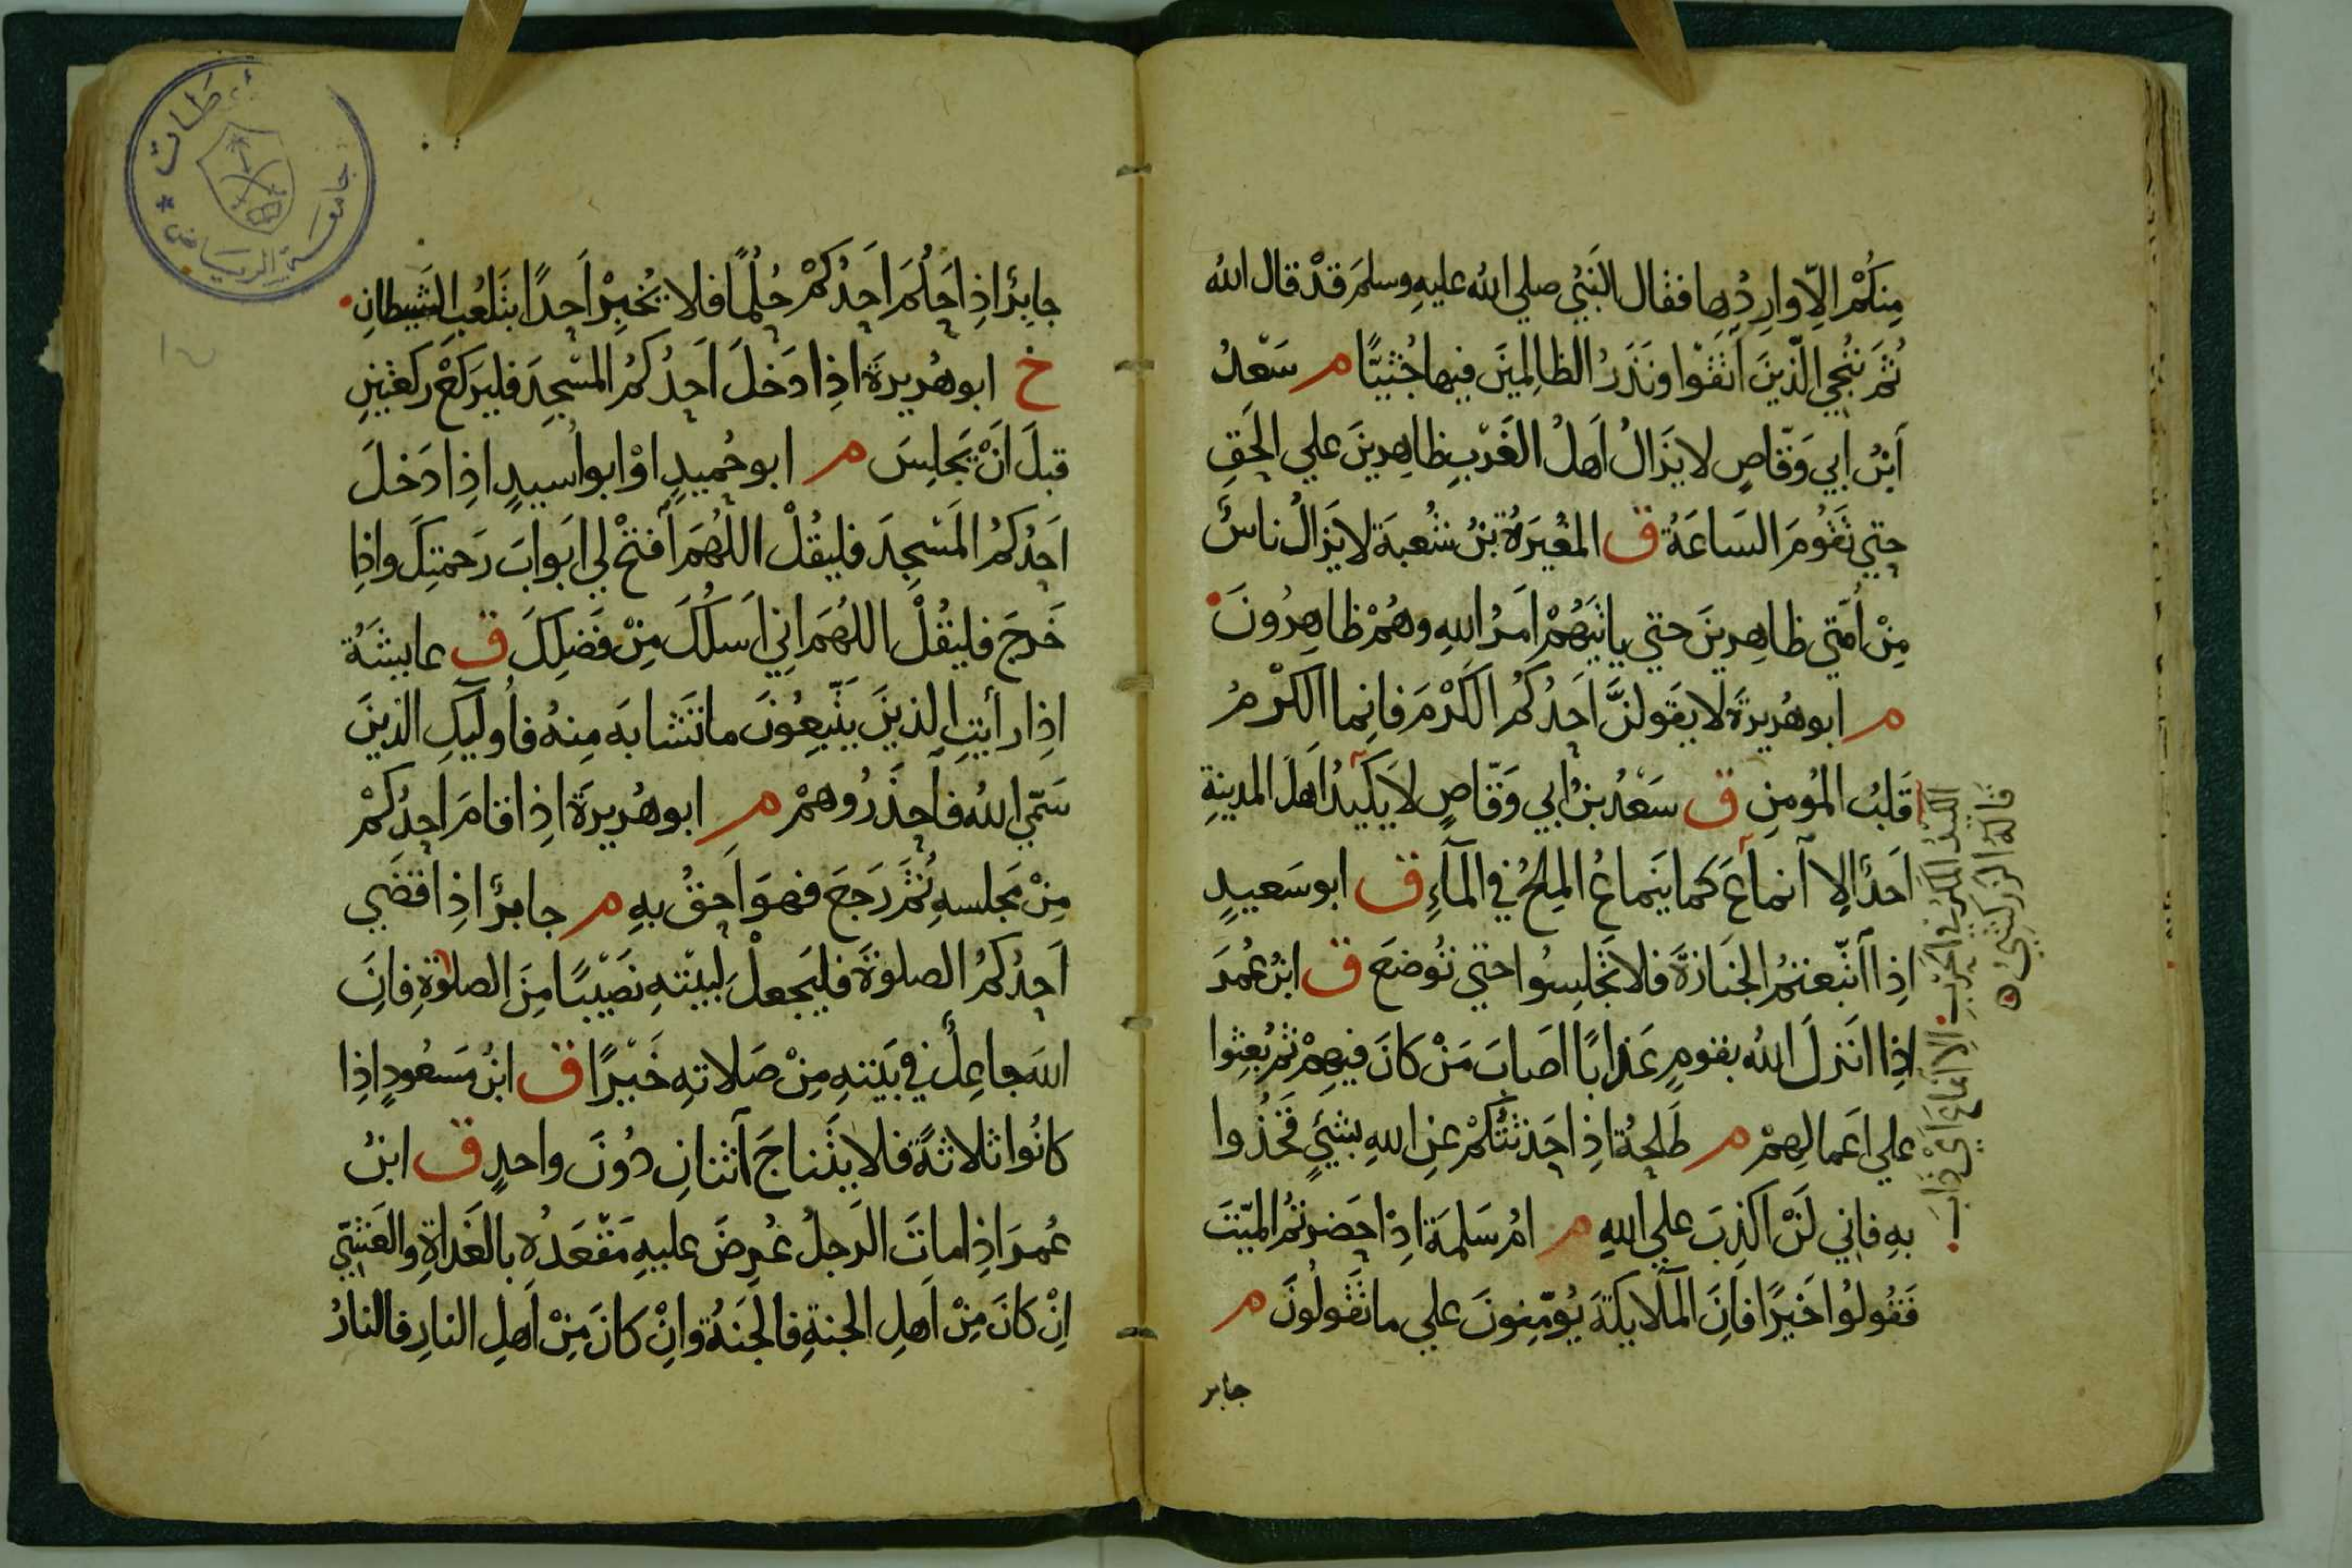 مِنكُمْ اِلّا وارِدُها فقال النَبيُ صلي الله عليهِ وسلمَ قدْ قال اللهُ
ثُمَ نُنَجِي الّذينَ اَتقَوْا ونَذَرُ الظالِمينَ فيها جُثِيًّا م سَعْدُ
اَبْنُ اَبي وَقّاصٍ لا يَزَالُ اَهلُ الغَرْبِ ظاهِرينَ علي الحَقِ
حتي تَقُومَ السَاعَةُ ق المغُيَرةُ بنُ شُعبَة لا يَزالُ ناسٌ
مِنْ اُمَتي ظاهِرينَ حتي ياتيَهُمْ اَمرُ اللهِ وهُمْ ظاهِرُونَ
م ابوهُريرةَ لا يقَولنَّ اَحَدُكُم الكَرْمَ فانِما الكرْمُ
قَلبُ المُومنِ ق سَعْدُ بنُ اَبي وَقّاصٍ لا يَكيدُ اَهلَ المدينةِ
اَحدٌ اِلا اَنماعَ كما يَنماعُ المِلحُ في المآءِ ق ابو سَعيدٍ
اذِا اَتّبعتمُ الجنَازةَ فلا تَجلِسُوا حتي تُوضعَ ق ابنُ عُمرَ
اذِا انَزلَ اللهُ بقومٍ عَذابًا اصَابَ مَنْ كانَ فيهِمْ ثم بُعِثوا
علي اعَمالِهمْ م طَلحةُ اذِا حَدثتُكمْ عنِ اللهِ بشَيٍ فَخُذُوا
بهِ فاني لَنْ اكَذِبَ علي اللهِ م امُ سَلمَة اذِا حَضرتمُ الميّتَ
فَقُولوُا خَيرًا فاِنَ المَلايكةَ يُؤمِّنونَ علي ما تَقُولوُنَ م
جابر
الكيد المكر في الحرب الا انماع اي ذاب
قاله الزركشي ه
جابِرٌ اذِا حَلَمَ اَحَدُكمْ حُلمًا فلا يُخبِرْ اَحدًا بتَلعُبِ الشَيطانِ
خ ابوهُريرةَ اذِا دَخلَ اَحدُكمُ المَسْجِدَ فليَركعْ رَكعتَينِ
قبلَ اَنْ يَجلِسَ م ابو حُميدٍ اوْ ابو اُسيدٍ اذِا دَخلَ
اَحدُكمُ المَسْجِدَ فليقُلْ اللهُمَ اَفتحْ لي ابَوابَ رَحمتِكَ واذِا
خَرجَ فليقُلْ اللهُمَ اِني اَسلُكَ مِنْ فَضلِكَ ق عايشَةُ
اذِا رأَيتِ الذينَ يَتّبِعُونَ ما تَشابَه مِنهُ فاُوليَكِ الذينَ
سَمّي اللهُ فاَحذَرُوهمْ م ابوهُريرةَ اذِا قامَ اَحدُكمْ
مِنْ مَجلسهِ ثُمَ رَجعَ فهوَ اَحقُ بهِ م جابرٌ اذِا قَضَي
اَحدُكمُ الصلوةَ فليَجعلْ لبَيْتهِ نَصَيبًا مِنَ الصلوةِ فاِنَ
اللهَ جاعِلٌ في بَيتهِ مِنْ صَلاتهِ خَيْرًا ق ابنُ مَسعُودٍ اذِا
كانُوا ثلاثةً فلا يتَناجَ اَثنانِ دُونَ واحدٍ ق ابنُ
عُمرَ اذِا ماتَ الرَجلُ عُرِضَ عليهِ مَقْعَدُه بالغَداةِ والعَشيّ
اِنْ كانَ مِنْ اَهلِ الجنةِ فالجنَةُ واِنْ كانَ مِنْ اَهلِ النارِ فالنارُ
جامعة الرياض